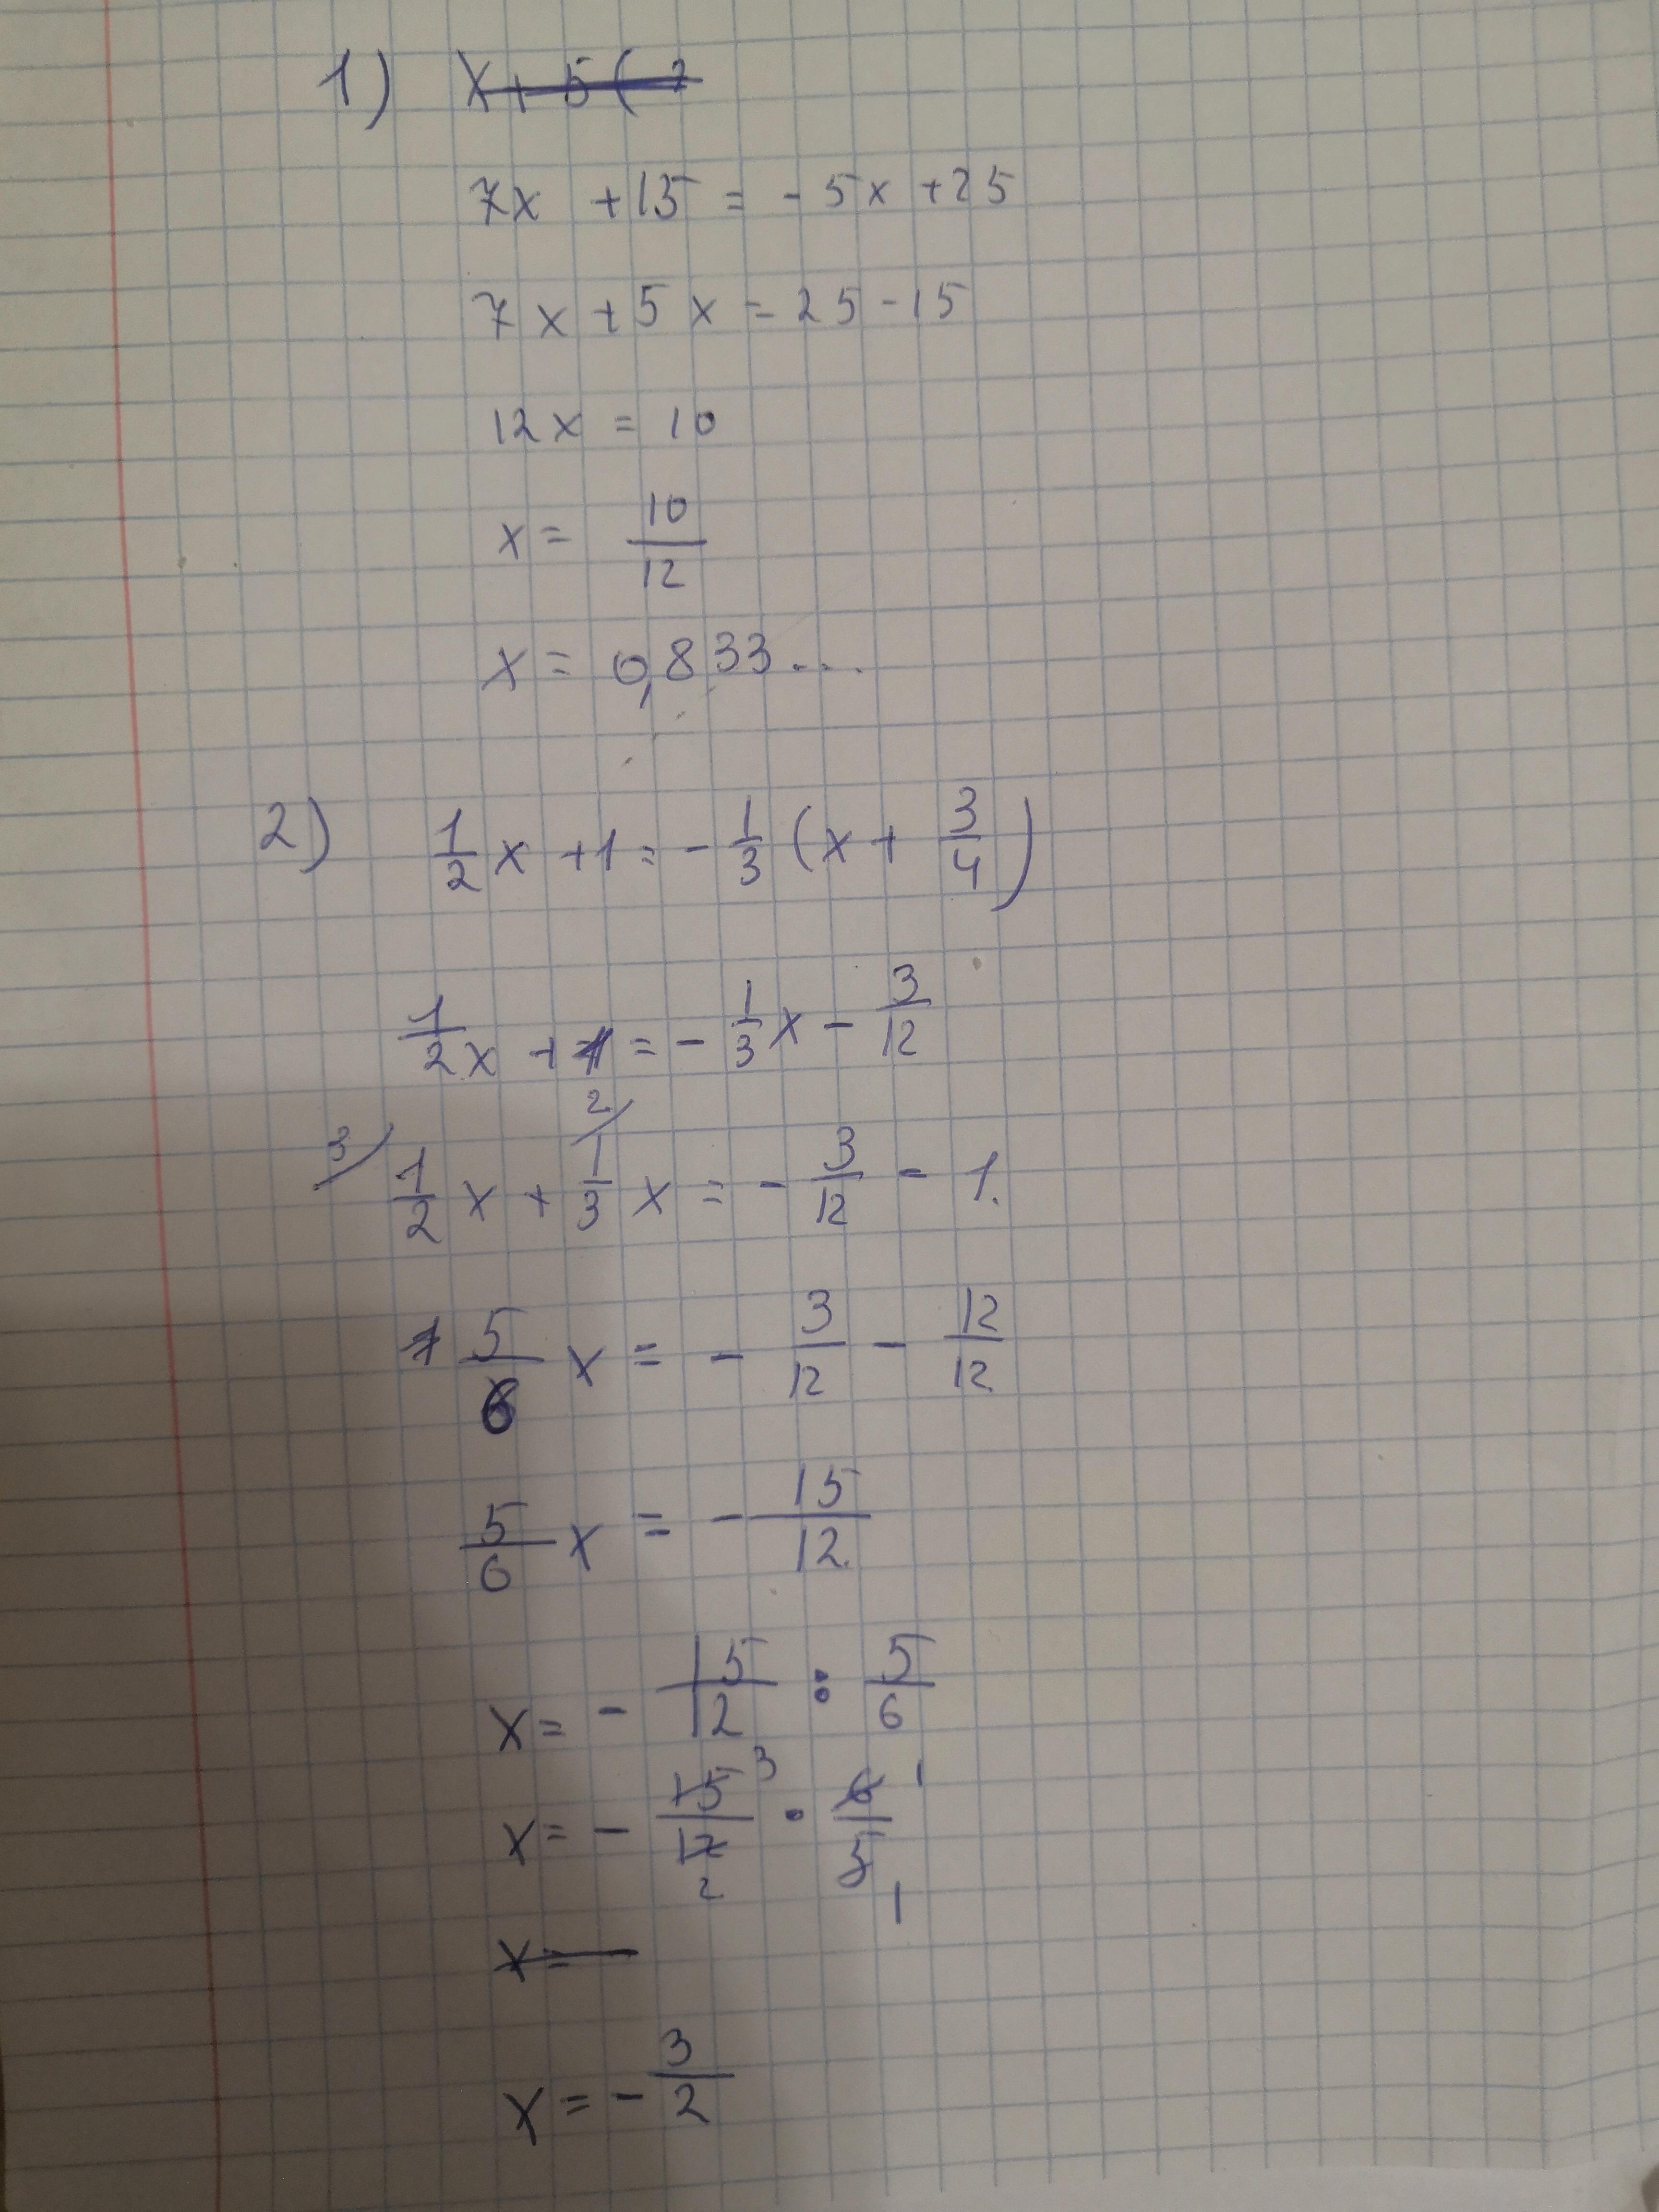 1) x + 5 ( 7
7x + 15 = - 5x + 25
7x + 5x = 25 - 15
12x = 10
x = 10/12
x = 0,833...
2) 1/2 x + 1 = - 1/3 (x + 3/4)
1/2 x + 1 = - 1/3 x - 3/12
3/ 1/2 x + 2/ 1/3 x = - 3/12 - 1.
5/6 x = - 3/12 - 12/12
5/6 x = - 15/12
x = - 15/12 : 5/6
x = - 15 3/12 2 · 6 1/5 1
x =
x = - 3/2